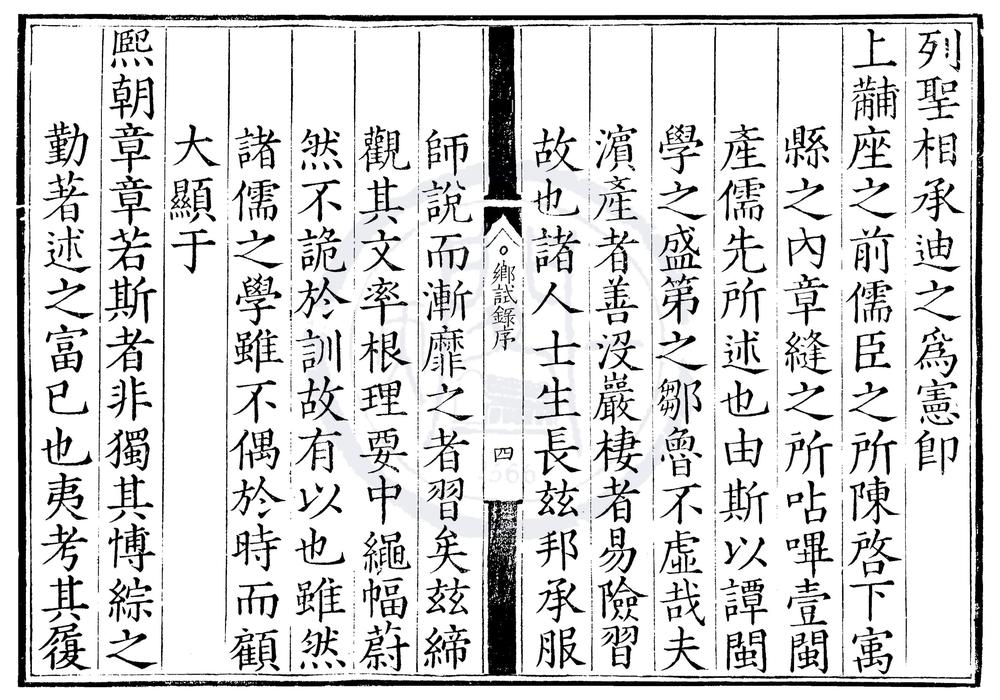 列聖相承迪之為憲即
上黼座之前儒臣之所陳啓下寓
縣之內章縫之所呫嗶壹閩
產儒先所述也由斯以譚閩
學之盛第之鄒魯不虛哉夫
濵產者善沒巖棲者易險習
故也諸人士生長玆邦承服
鄉試錄序
四
師說而漸靡之者習矣玆締
觀其文率根理要中繩幅蔚
然不詭於訓故有以也雖然
諸儒之學雖不偶於時而顧
大顯于
熙朝章章若斯者非獨其博綜之
勤著述之富已也夷考其履